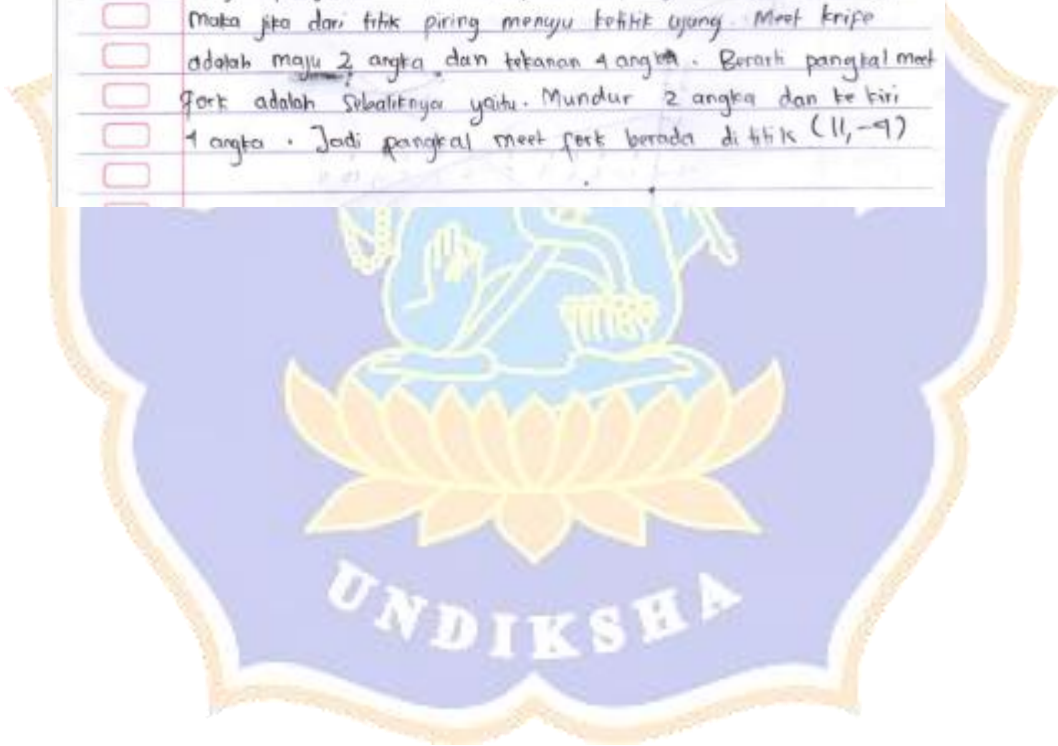 Maka jika dari titik piring menuju ketitik ujung. Meet krife
adalah maju 2 angka dan kekanan 4 angka. Berarti pangkal meet
fork adalah sebaliknya yaitu. Mundur 2 angka dan ke kiri
4 angka. Jadi pangkal meet ferk berada di titik (11,-9)
UNDIKSHA